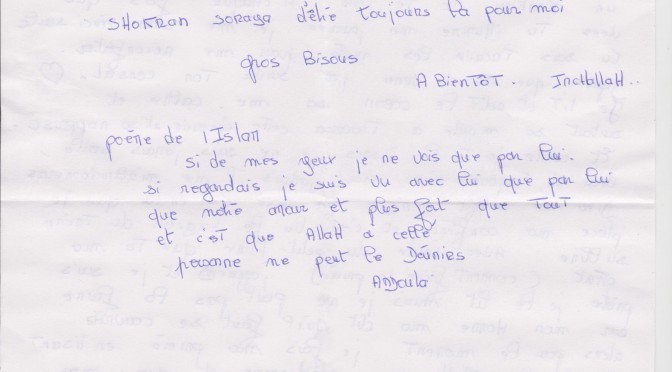 SHOKRAN soraya d'être toujours là pour moi
gros Bisous
A BienTôT. IncHallaH..
poéne de l'Islan
si de mes yeur je ne vois que par lui.
si regardais je suis vu avec lui que par lui
que notre amour et plus fait que TouT
et c'sT que AllaH a cette
personne ne peut le Déunies